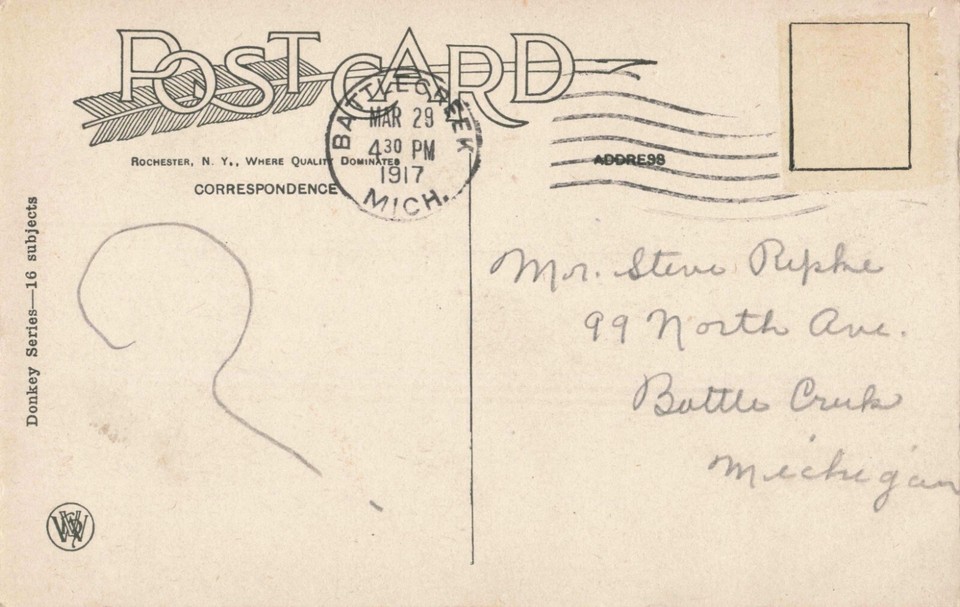 POST CARD
ROCHESTER, N. Y., WHERE QUALITY DOMINATES
CORRESPONDENCE
ADDRESS
BATTLE CREEK
MAR 29
4 30 PM
1917
MICH.
Donkey Series—16 subjects
?
Mr. Steve Ripke
99 North Ave.
Battle Creek
Michigan